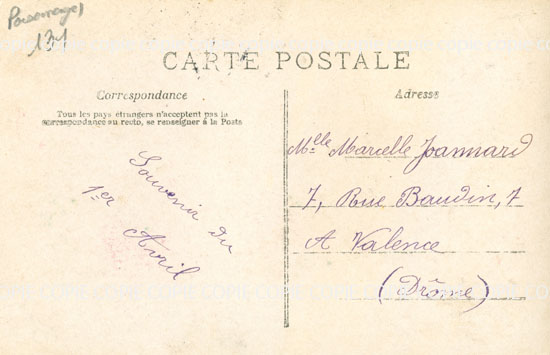 Personnages
121
CARTE POSTALE
Correspondance
Tous les pays étrangers n'acceptent pas la
correspondance au recto, se renseigner à la Poste
Souvenir du
1er Avril
Adresse
Melle Marcelle Joannard
7, Rue Baudin, 7
A Valence
(Drôme)
COPIE COPIE COPIE COPIE COPIE COPIE